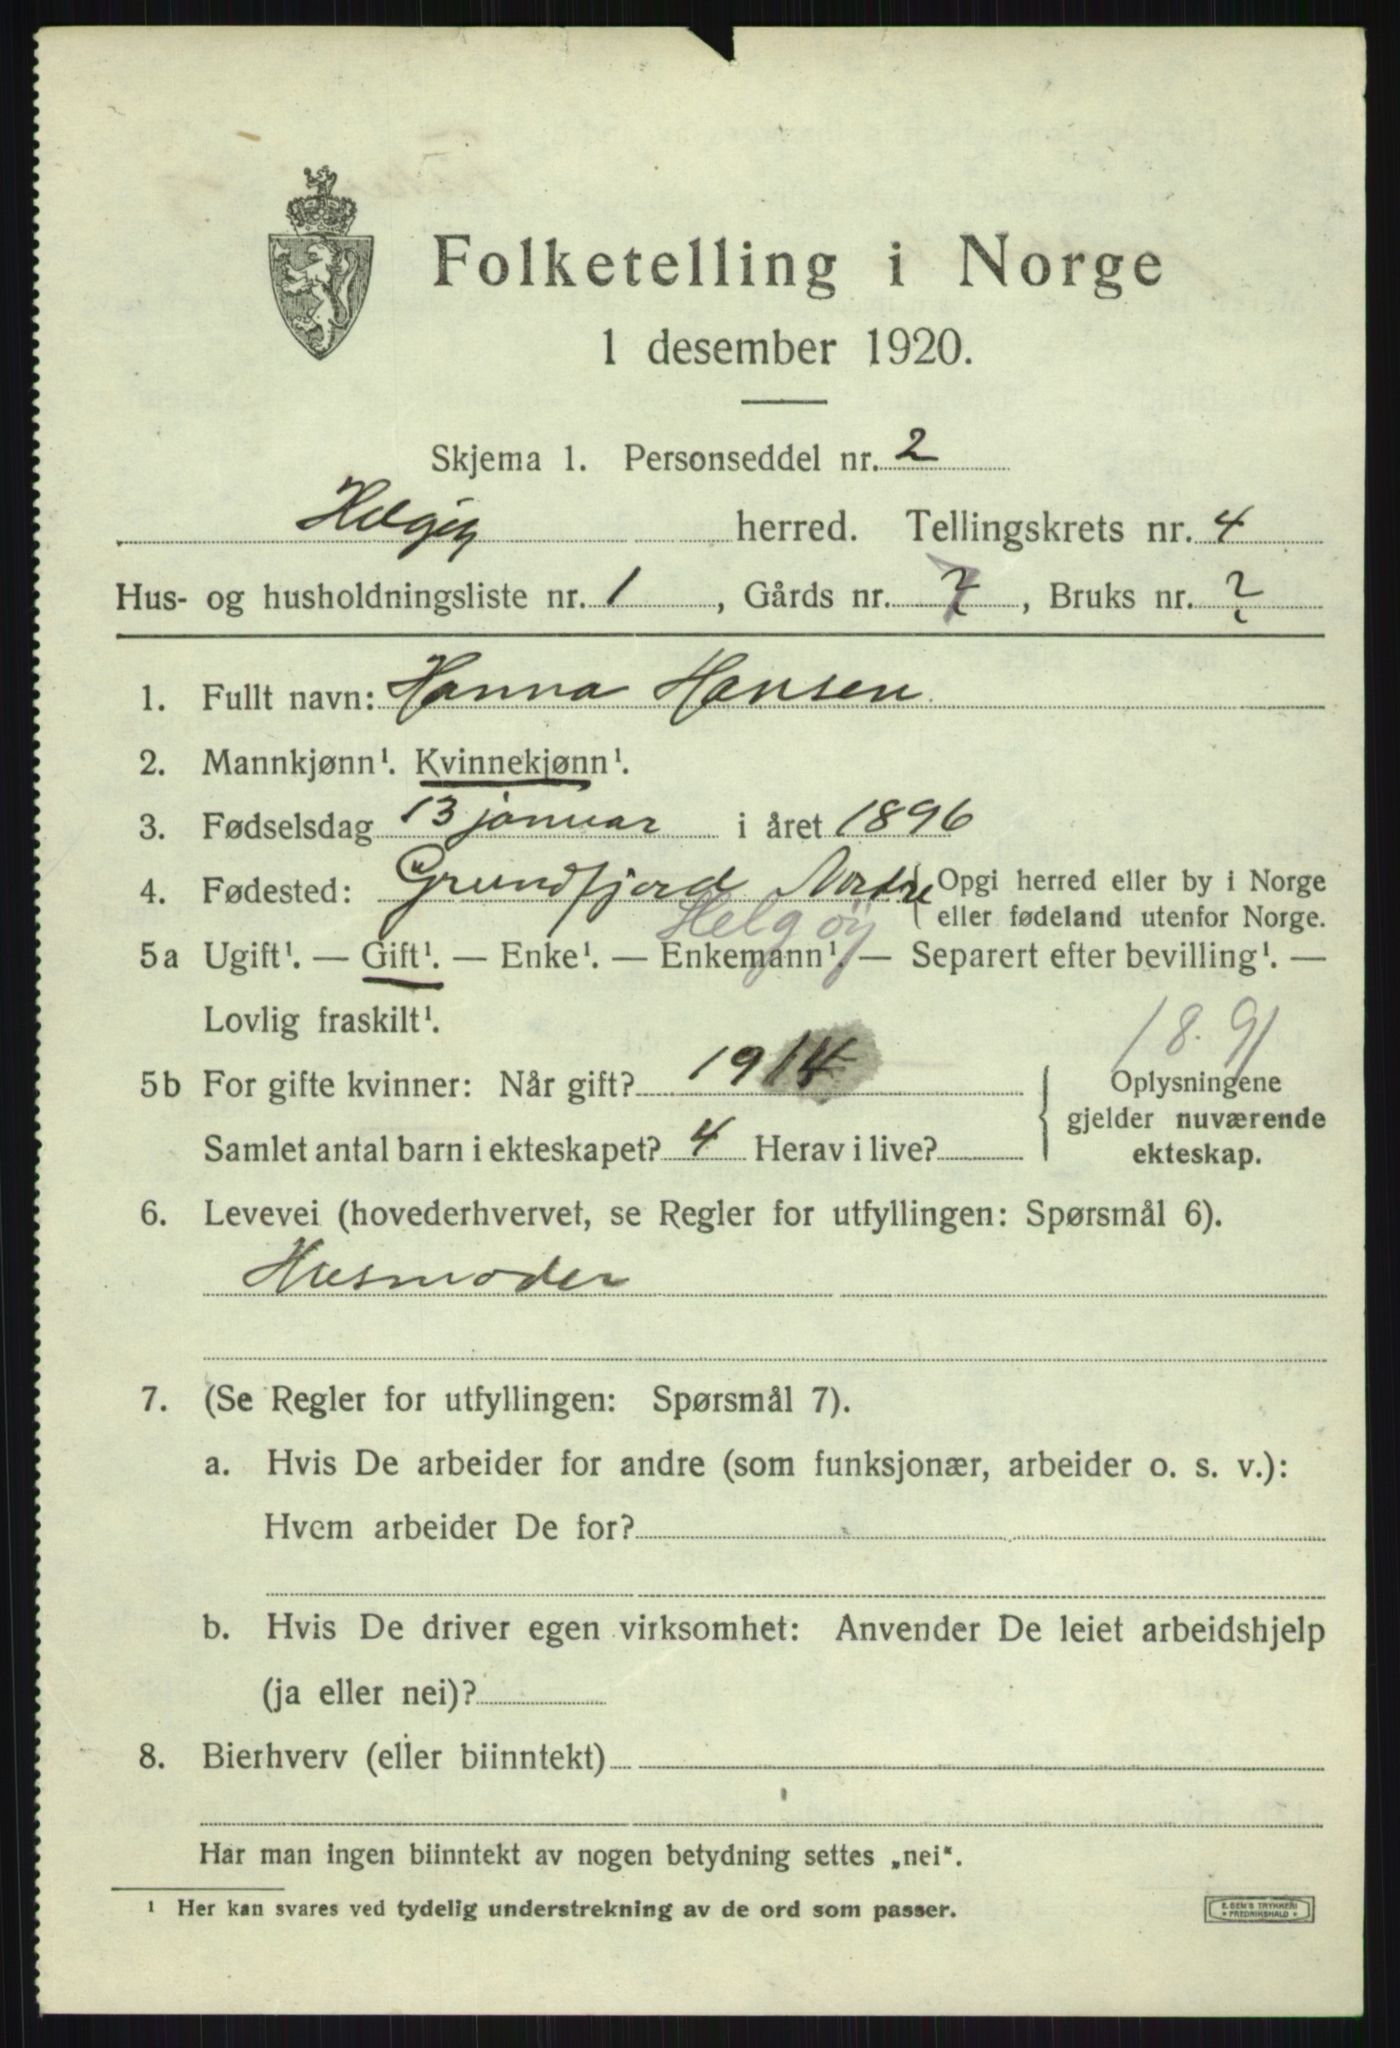 Folketelling i Norge
1 desember 1920.
Skjema 1. Personseddel nr. 2
Helgøy herred. Tellingskrets nr. 4
Hus- og husholdningsliste nr. 1, Gårds nr. 7, Bruks nr. ?
1. Fullt navn: Hanna Hansen
2. Mannkjønn¹. Kvinnekjønn¹.
3. Fødselsdag 13 januar i året 1896
4. Fødested: Grundfjord Nordre { Opgi herred eller by i Norge
eller fødeland utenfor Norge.
Helgøy
5a Ugift¹. — Gift¹. — Enke¹. — Enkemann¹. — Separert efter bevilling¹. —
Lovlig fraskilt¹.
18.91
5b For gifte kvinner: Når gift? 1914 Oplysningene
gjelder nuværende
Samlet antal barn i ekteskapet? 4 Herav i live? ekteskap.
6. Levevei (hovederhvervet, se Regler for utfyllingen: Spørsmål 6).
Husmoder
7. (Se Regler for utfyllingen: Spørsmål 7).
a. Hvis De arbeider for andre (som funksjonær, arbeider o. s. v.):
Hvem arbeider De for?
b. Hvis De driver egen virksomhet: Anvender De leiet arbeidshjelp
(ja eller nei)?
8. Bierhverv (eller biinntekt)
Har man ingen biinntekt av nogen betydning settes „nei".
¹ Her kan svares ved tydelig understrekning av de ord som passer.
E. SEM'S TRYKKERI
* FREDRIKSHALD *